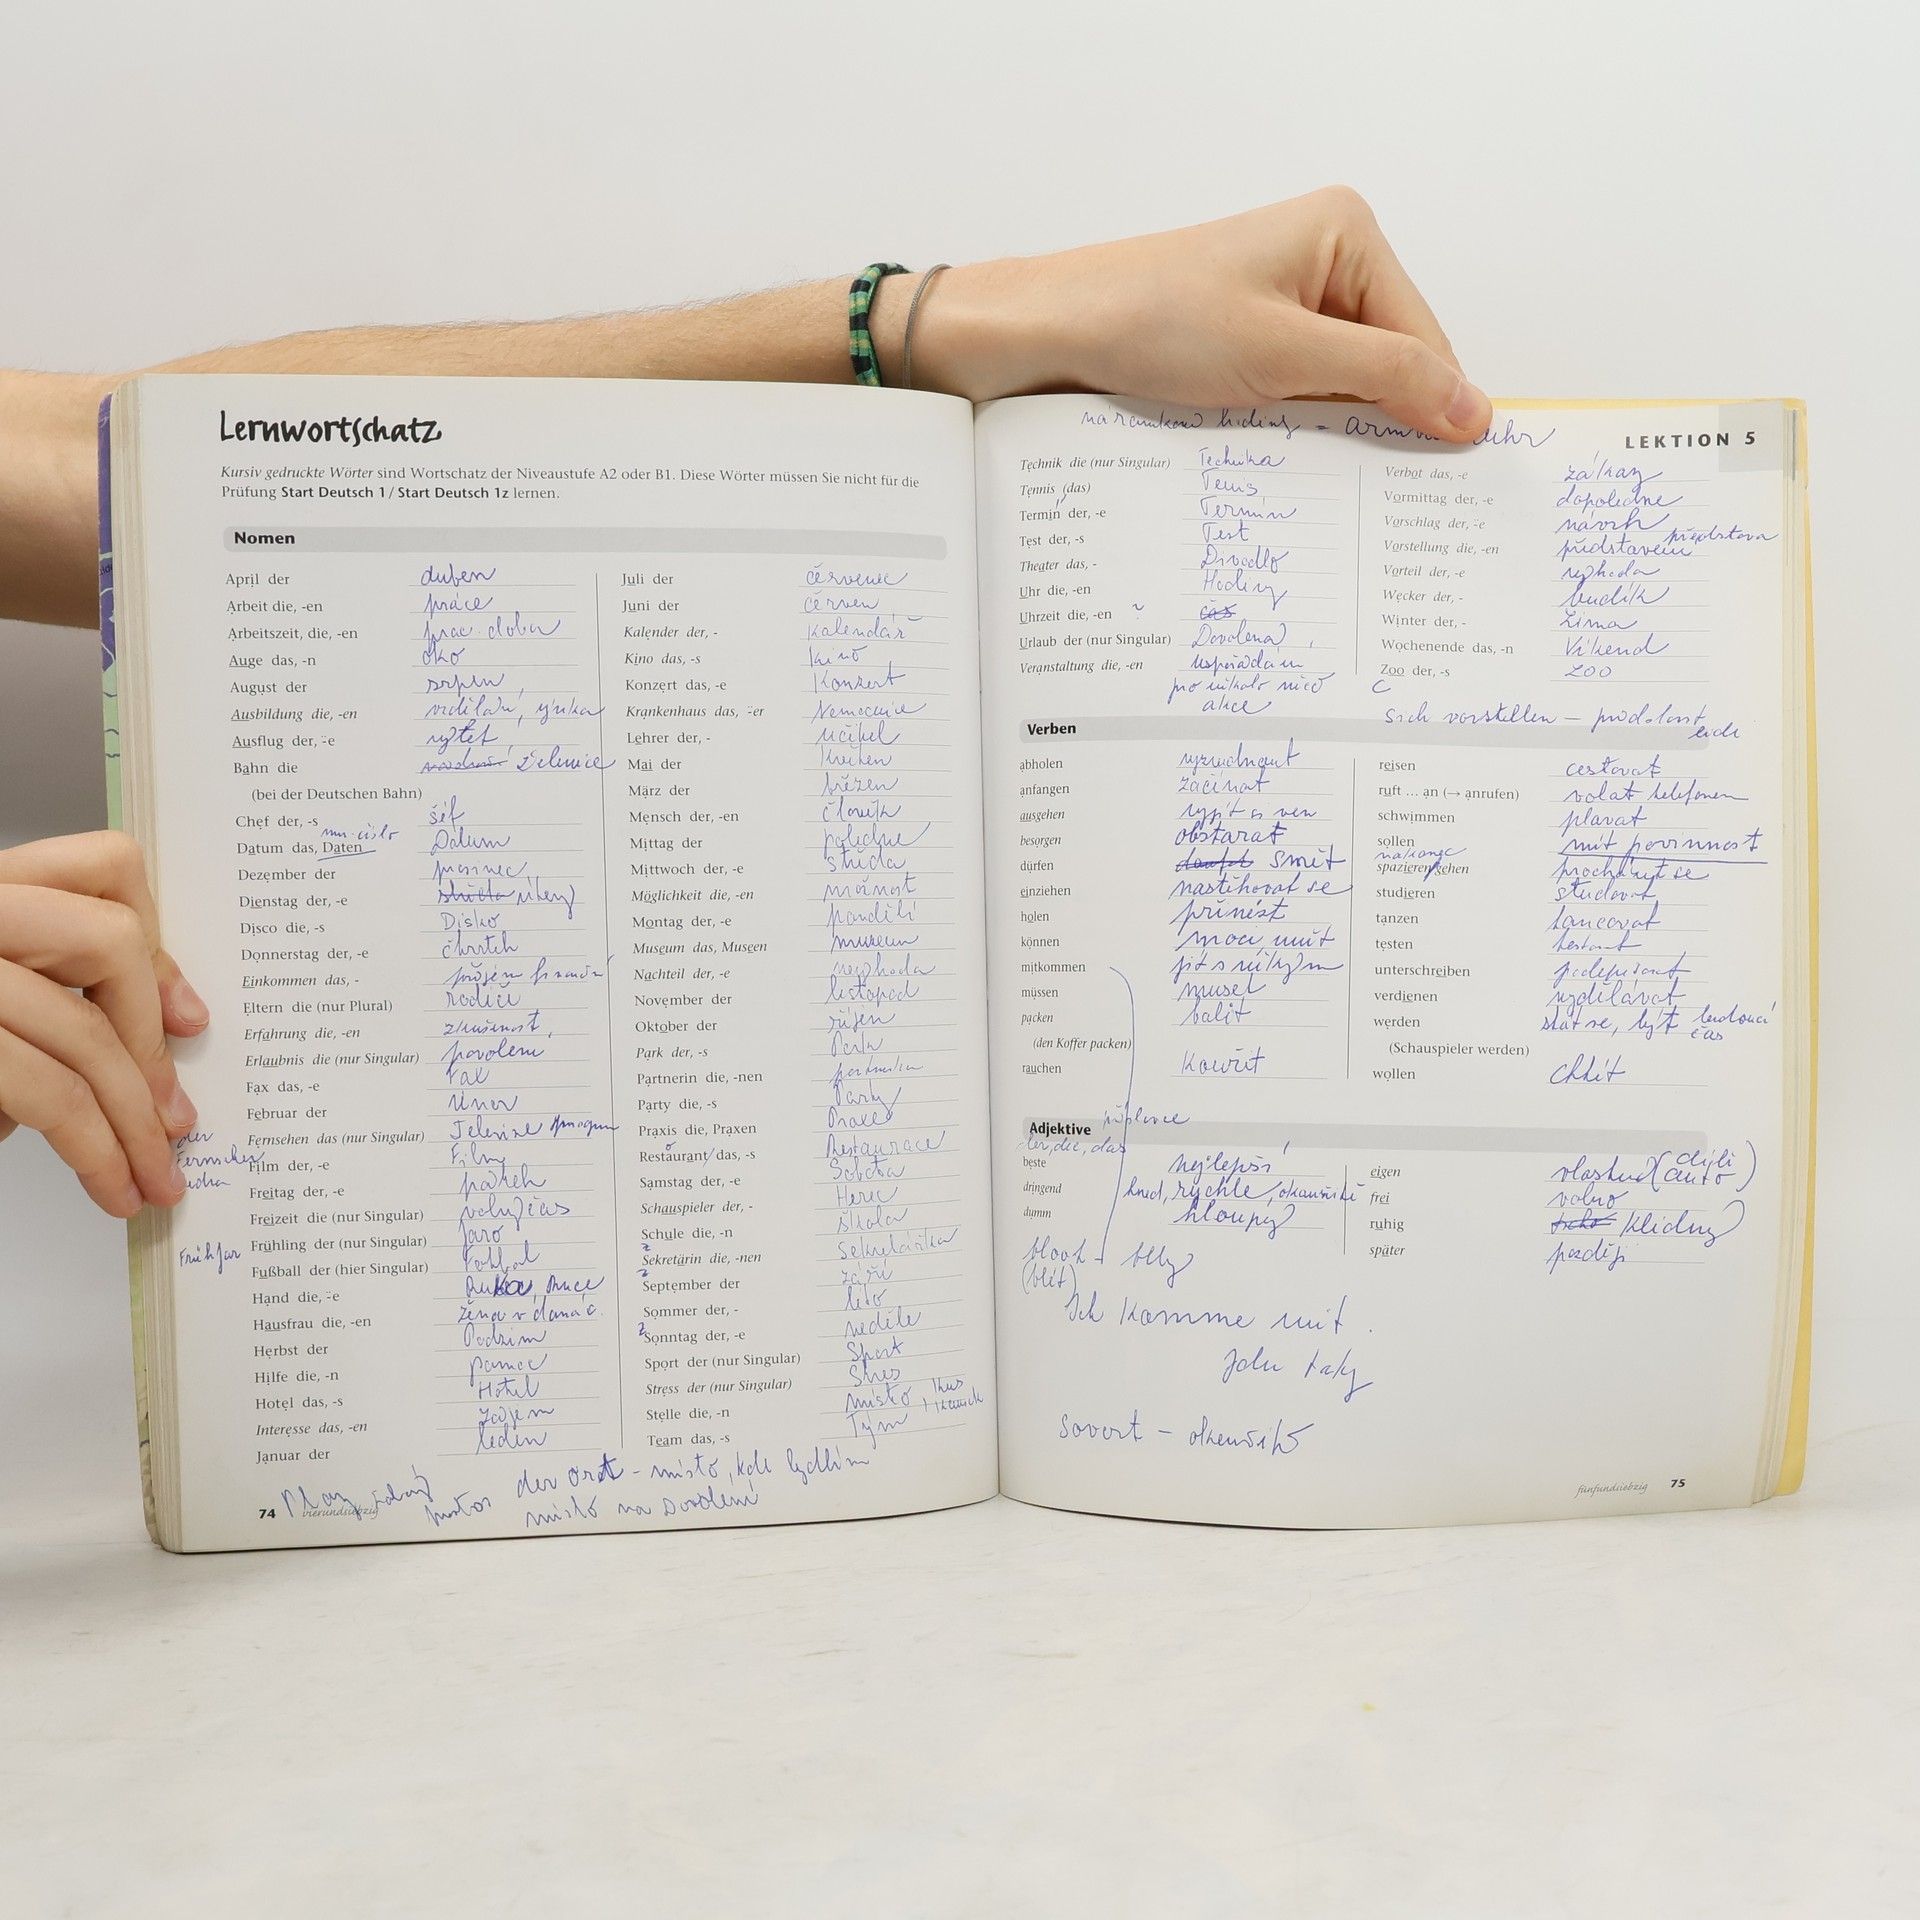 Lernwortschatz
Kursiv gedruckte Wörter sind Wortschatz der Niveaustufe A2 oder B1. Diese Wörter müssen Sie nicht für die
Prüfung Start Deutsch 1 / Start Deutsch 1z lernen.
Nomen
April der duben
Arbeit die, -en práce
Arbeitszeit, die, -en prac. doba
Auge das, -n oko
August der srpen
Ausbildung die, -en
Ausflug der, -̈e výlet
Bahn die železnice
(bei der Deutschen Bahn)
Chef der, -s šéf
Datum das, Daten Datum
Dezember der prosinec
Dienstag der, -e úterý
Disco die, -s Disko
Donnerstag der, -e čtvrtek
Einkommen das, - příjem
Eltern die (nur Plural) rodiče
Erfahrung die, -en zkušenost
Erlaubnis die (nur Singular) povolení
Fax das, -e Fax
Februar der únor
Fernsehen das (nur Singular) Televize program
Film der, -e Film
Freitag der, -e pátek
Freizeit die (nur Singular) volný čas
Frühling der (nur Singular) jaro
Frühjar
Fußball der (hier Singular) Fotbal
Hand die, -̈e Ruka, Ruce
Hausfrau die, -en žena v domác.
Herbst der Podzim
Hilfe die, -n pomoc
Hotel das, -s Hotel
Interesse das, -en zájem
Januar der leden
Juli der červenec
Juni der červen
Kalender der, - kalendář
Kino das, -s kino
Konzert das, -e Konzert
Krankenhaus das, -̈er Nemocnice
Lehrer der, - učitel
Mai der květen
März der březen
Mensch der, -en člověk
Mittag der poledne
Mittwoch der, -e středa
Möglichkeit die, -en možnost
Montag der, -e pondělí
Museum das, Museen muzeum
Nachteil der, -e nevýhoda
November der listopad
Oktober der říjen
Park der, -s Park
Partnerin die, -nen partnerka
Party die, -s Party
Praxis die, Praxen Praxe
Restaurant das, -s Restaurace
Samstag der, -e Sobota
Schauspieler der, - Herec
Schule die, -n škola
Sekretärin die, -nen sekretářka
September der září
Sommer der, - léto
Sonntag der, -e neděle
Sport der (nur Singular) Sport
Stress der (nur Singular) Stres
Stelle die, -n místo
Team das, -s Tým
der Ort - místo, kde bydlím
místo na Dovolení
74 vierundsiebzig
LEKTION 5
Technik die (nur Singular) Technika
Tennis (das) Tenis
Termin der, -e Termín
Test der, -s Test
Theater das, - Divadlo
Uhr die, -en Hodiny
Uhrzeit die, -en čas
Urlaub der (nur Singular) Dovolená
Veranstaltung die, -en uspořádání
pro někoho něco
akce
Verbot das, -e zákaz
Vormittag der, -e dopoledne
Vorschlag der, -̈e návrh
Vorstellung die, -en představení představa
Vorteil der, -e výhoda
Wecker der, - budík
Winter der, - Zima
Wochenende das, -n Víkend
Zoo der, -s zoo
Verben
abholen vyzvednout
anfangen začínat
ausgehen vyjít si ven
besorgen obstarat
dürfen smět
einziehen nastěhovat se
holen přinést
können moci, umět
mitkommen jít s někým
müssen muset
packen balit
(den Koffer packen)
rauchen kouřit
reisen cestovat
ruft ... an (→ anrufen) volat telefonem
schwimmen plavat
sollen mít povinnost
spazieren gehen procházet se
studieren studovat
tanzen tancovat
testen testovat
unterschreiben podepisovat
verdienen vydělávat
werden stát se, být budoucí čas
(Schauspieler werden)
wollen chtít
Adjektive
der, die, das
beste nejlepší
dringend hned, rychle, okamžitě
dumm hloupý
eigen vlastní
frei volno
ruhig klidný
später později
Ich komme mit.
Jdu taky
Sovort - okamžitě
fünfundsiebzig 75